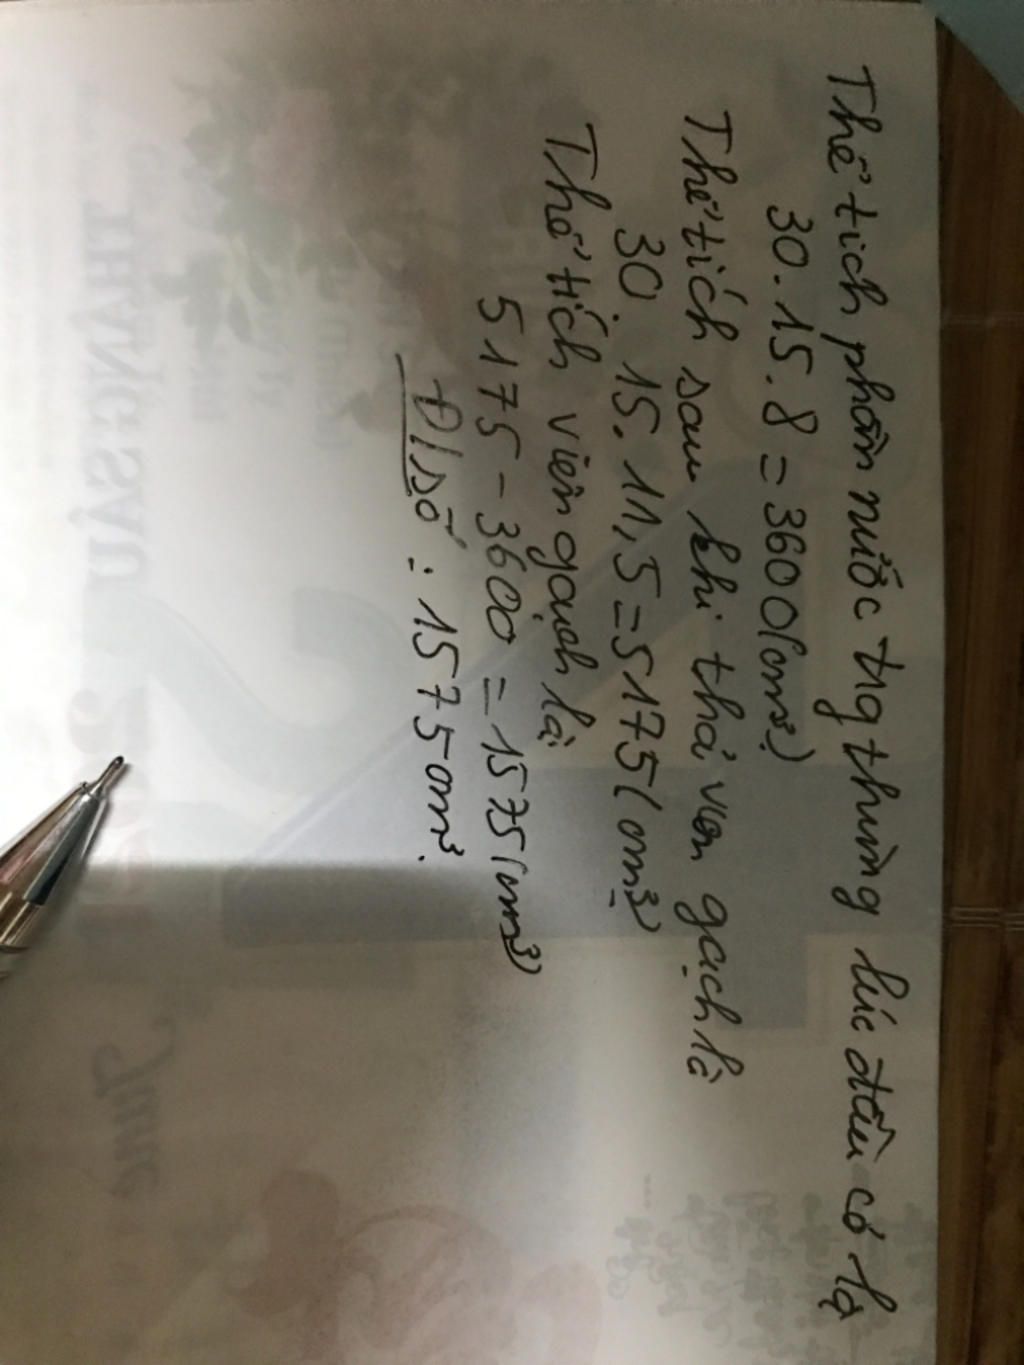 Thể tích phần nước trg thùng lúc đầu có là
30.15.8 = 3600(cm³)
Thể tích sau khi thả viên gạch là
30.15.11,5 = 5175(cm³)
Thể tích viên gạch là
5175 - 3600 = 1575(cm³)
Đ/số: 1575cm³.
THÁNG SÁU
June